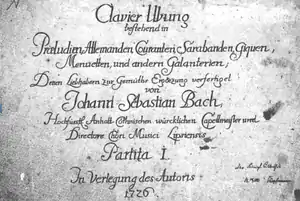 Clavier Ubung
bestehend in
Præludien, Allemanden, Couranten, Sarabanden, Giquen,
Menuetten, und andern Galanterien;
Denen Liebhabern zur Gemüths Ergoezung verfertiget
von
Johann Sebastian Bach,
Hochfürstl. Anhalt-Cöthnischen würcklichen Capellmeister und
Directore Chori Musici Lipsiensis.
Partita I.
In Verlegung des Autoris
1726